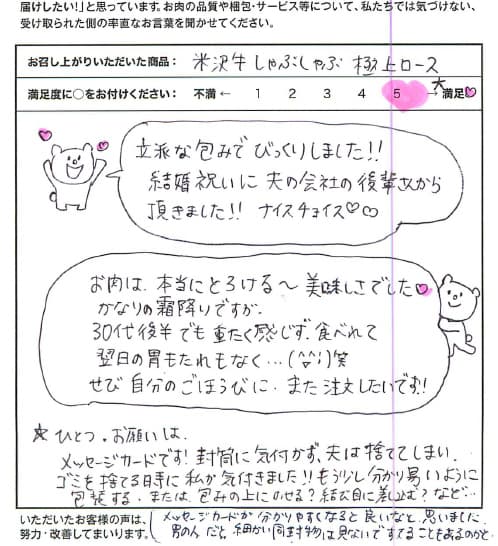 届けしたい!」と思っています。お肉の品質や梱包・サービス等について、私たちでは気づけない、
受け取られた側の率直なお言葉を聞かせてください。
お召し上がりいただいた商品: 米沢牛しゃぶしゃぶ 極上ロース
満足度に○をお付けください: 不満 ← 1 2 3 4 5 → 満足
立派な包みで びっくりしました!!
結婚祝いに 夫の会社の後輩さんから
頂きました!! ナイスチョイス♡♡
お肉は、本当にとろける〜 美味しさでした♥
かなりの霜降りですが、
30代後半でも重たく感じず、食べれて
翌日の胃もたれもなく…(^^;)笑
ぜひ 自分のごほうびに、また注文したいです!!
☆ひとつ、お願いは、
メッセージカードです!封筒に気付かず、夫は捨ててしまい、
ゴミを捨てる時に私が気付きました!!もう少し分かり易いように
包装する、または、包みの上にのせる?結び目に差込む?など…
いただいたお客様の声は、
努力・改善してまいります。
メッセージカードが分かりやすくなると良いなと、思いました。
男の人だと、細かい同封物は見ないで捨てることもあるので、